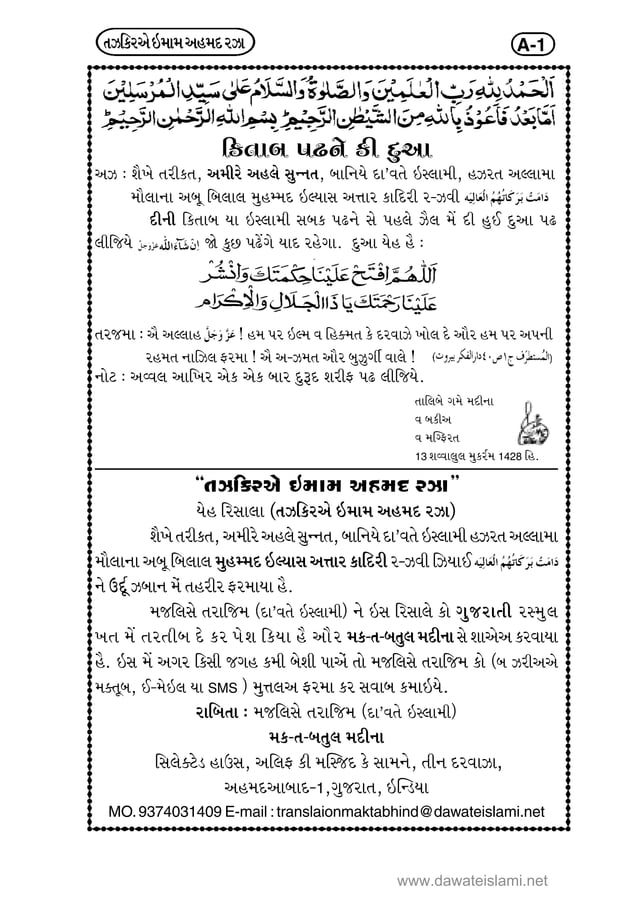 તઝકિરએ ઇમામ અહમદ રઝા
A-1
اَلْحَمْدُ لِلّٰهِ رَبِّ الْعٰلَمِيْنَ وَالصَّلٰوةُ وَالسَّلَامُ عَلٰى سَيِّدِ الْمُرْسَلِيْنَ
اَمَّا بَعْدُ فَاَعُوْذُ بِاللّٰهِ مِنَ الشَّيْطٰنِ الرَّجِيْمِ بِسْمِ اللّٰهِ الرَّحْمٰنِ الرَّحِيْمِ
કિતાબ પઢને કી દુઆ
અઝ : શૈખે તરીકત, અમીરે અહલે સુન્નત, બાનિયે દા'વતે ઇસ્લામી, હઝરત અલ્લામા
મૌલાના અબૂ બિલાલ મુહમ્મદ ઇલ્યાસ અત્તાર કાદિરી ર-ઝવી دَامَتْ بَرَكَاتُهُمُ الْعَالِيَه
દીની કિતાબ યા ઇસ્લામી સબક પઢને સે પહલે ઝૈલ મેં દી હુઈ દુઆ પઢ
લીજિયે اِنْ شَآءَ اللّٰه عَزَّوَجَلَّ જો કુછ પઢેંગે યાદ રહેગા. દુઆ યેહ હૈ :
اَللّٰهُمَّ افْتَحْ عَلَيْنَا حِكْمَتَكَ وَانْشُرْ
عَلَيْنَا رَحْمَتَكَ يَا ذَا الْجَلَالِ وَالْاِكْرَام
તરજમા : ઐ અલ્લાહ عَزَّ وَجَلَّ ! હમ પર ઇલ્મ વ હિક્મત કે દરવાઝે ખોલ દે ઔર હમ પર અપની
રહમત નાઝિલ ફરમા ! ઐ અ-ઝમત ઔર બુઝુર્ગી વાલે ! (المُستطرَف ج١ص٤٠دارالفكربيروت)
નોટ : અવ્વલ આખિર એક એક બાર દુરૂદ શરીફ પઢ લીજિયે.
તાલિબે ગમે મદીના
વ બકીઅ
વ મગ્ફિરત
13 શવ્વાલુલ મુકર્રમ 1428 હિ.
“તઝકિરએ ઇમામ અહમદ રઝા”
યેહ રિસાલા (તઝકિરએ ઇમામ અહમદ રઝા)
શૈખે તરીકત, અમીરે અહલે સુન્નત, બાનિયે દા'વતે ઇસ્લામી હઝરત અલ્લામા
મૌલાના અબૂ બિલાલ મુહમ્મદ ઇલ્યાસ અત્તાર કાદિરી ર-ઝવી ઝિયાઈ دَامَتْ بَرَكَاتُهُمُ الْعَالِيَه
ને ઉર્દૂ ઝબાન મેં તહરીર ફરમાયા હૈ.
મજલિસે તરાજિમ (દા'વતે ઇસ્લામી) ને ઇસ રિસાલે કો ગુજરાતી રસ્મુલ
ખત મેં તરતીબ દે કર પેશ કિયા હૈ ઔર મક-ત-બતુલ મદીના સે શાએઅ કરવાયા
હૈ. ઇસ મેં અગર કિસી જગહ કમી બેશી પાએં તો મજલિસે તરાજિમ કો (બ ઝરીઅએ
મક્તૂબ, ઈ-મેઇલ યા SMS ) મુત્તલઅ ફરમા કર સવાબ કમાઇયે.
રાબિતા : મજલિસે તરાજિમ (દા'વતે ઇસ્લામી)
મક-ત-બતુલ મદીના
સિલેક્ટેડ હાઉસ, અલિફ કી મસ્જિદ કે સામને, તીન દરવાઝા,
અહમદઆબાદ-1, ગુજરાત, ઇન્ડિયા
MO. 9374031409 E-mail : translaionmaktabhind@dawateislami.net
www.dawateislami.net